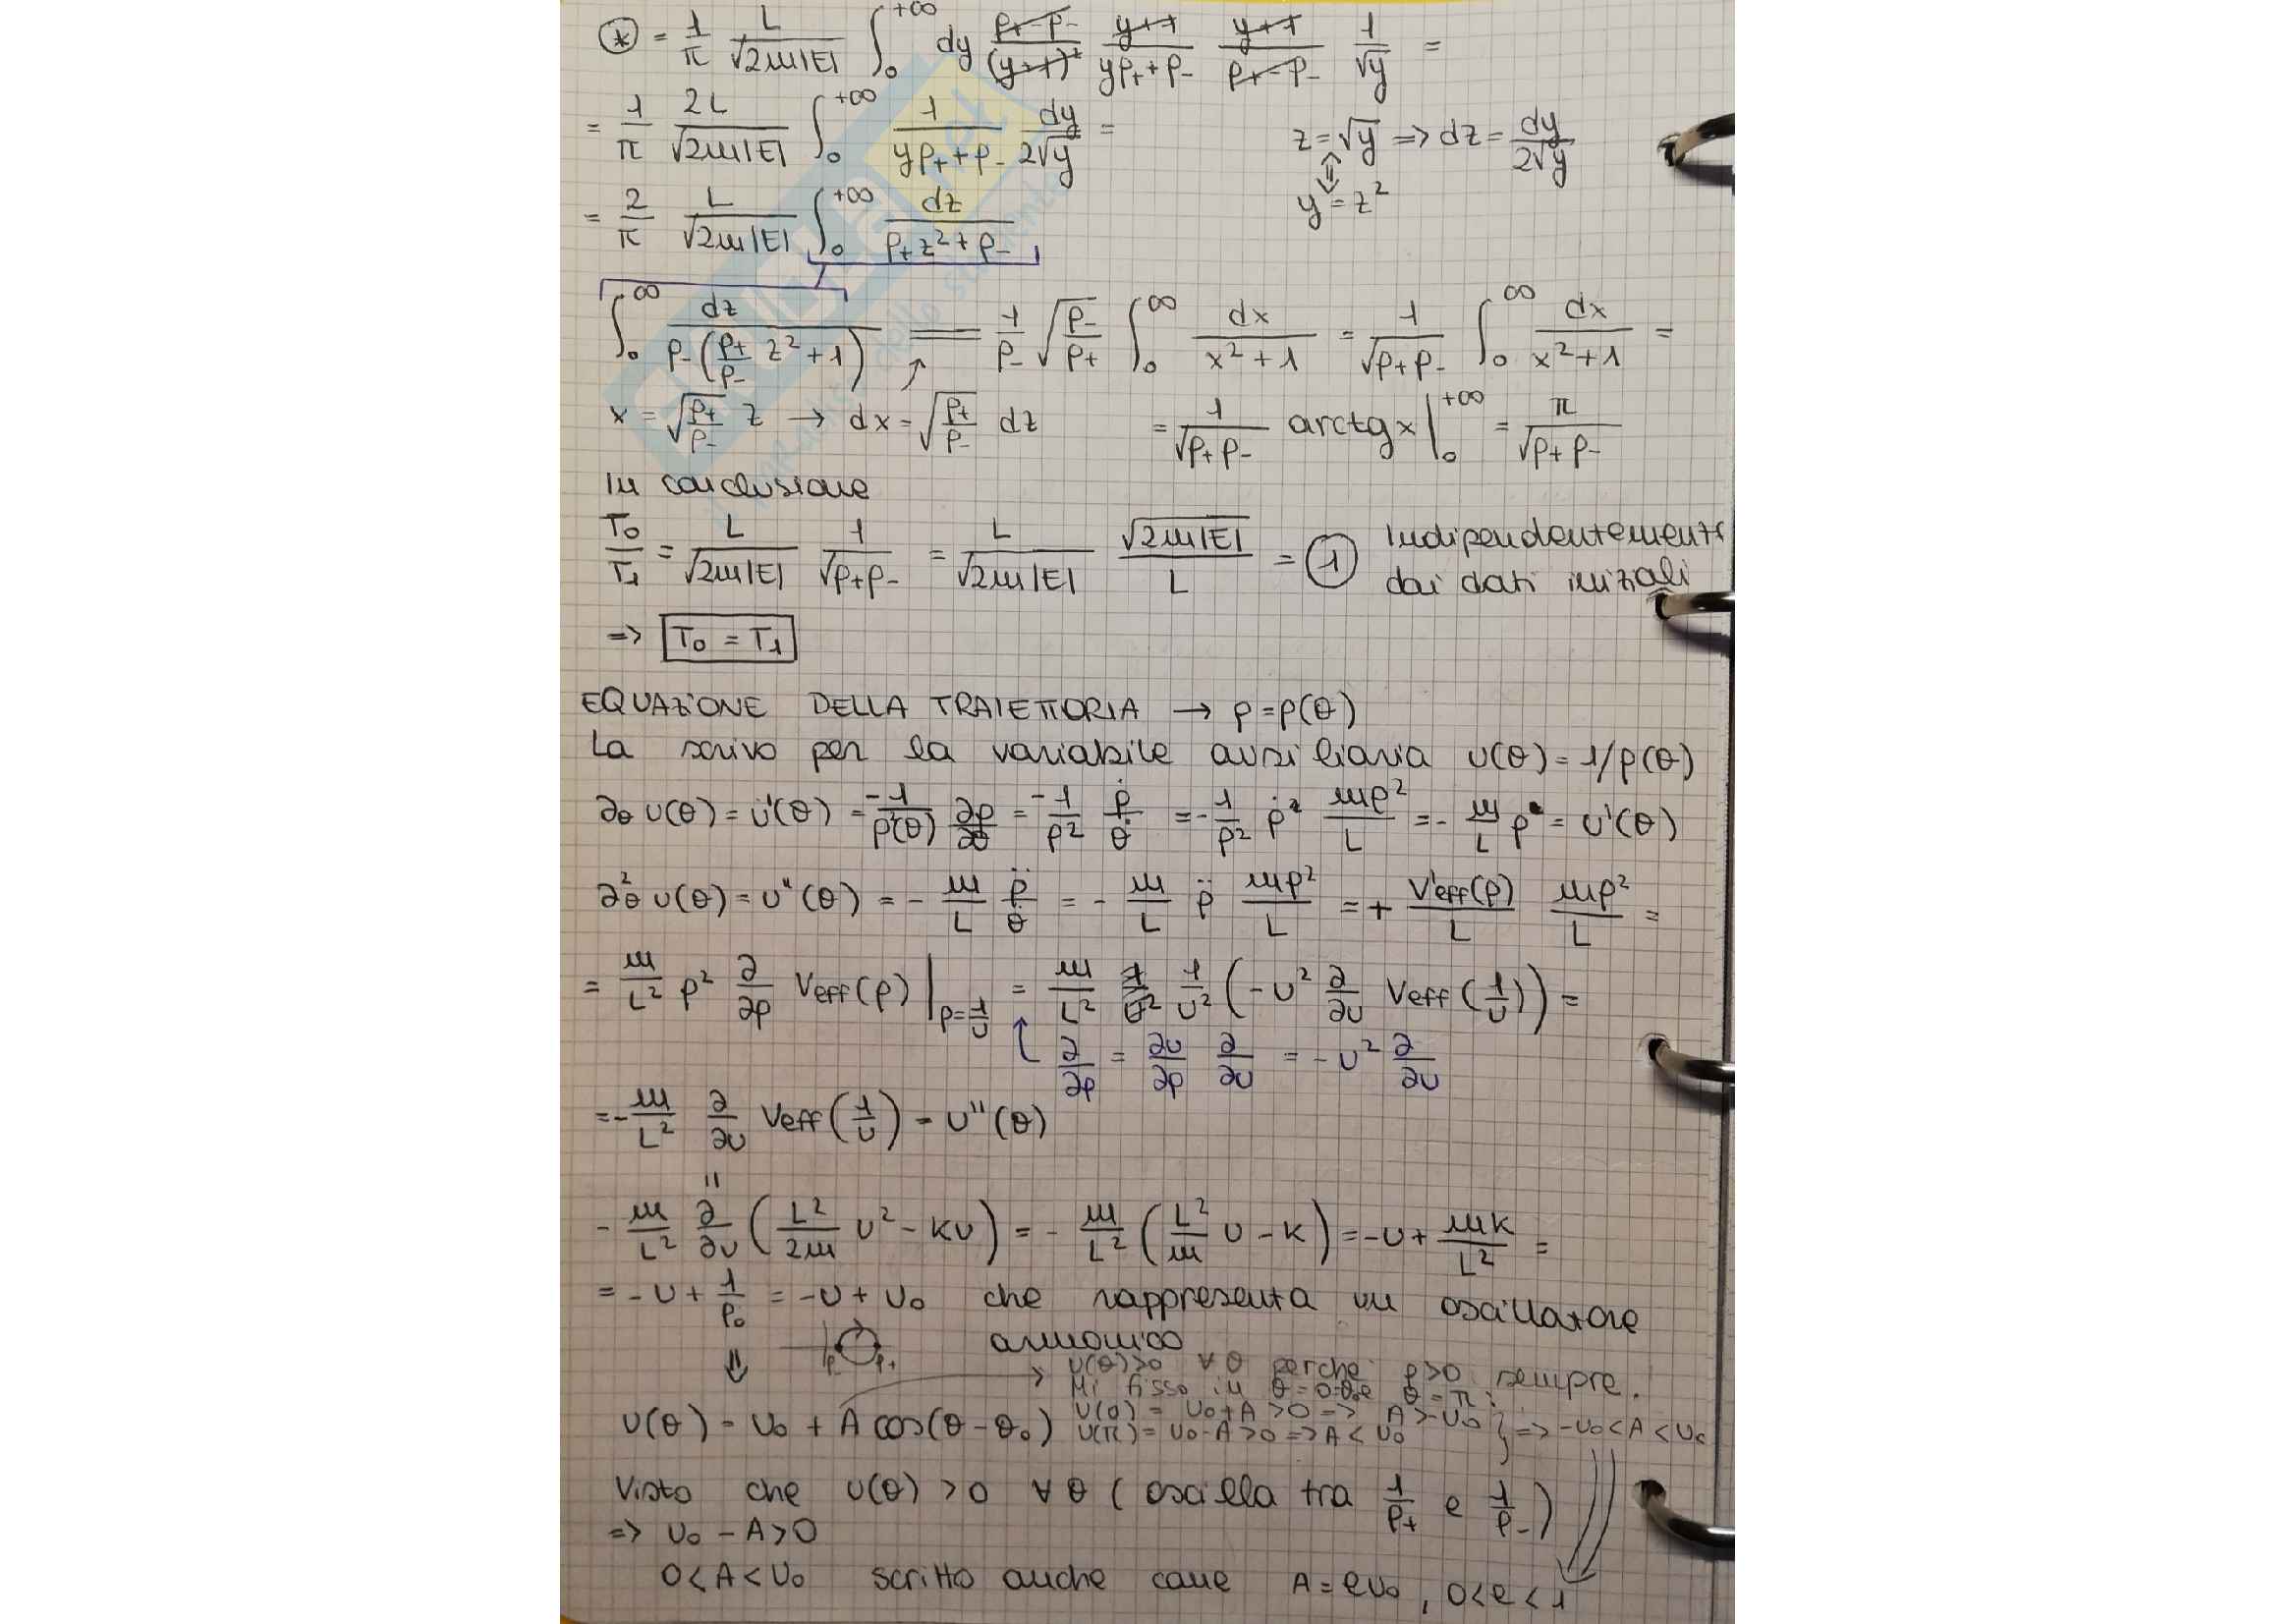 ⊛ = 1/π L/√2m|E| ∫₀^{+∞} dy (ρ₊-ρ₋)/(y+1)² (y+1)/(yρ₊+ρ₋) (y+1)/(ρ₊-ρ₋) 1/√y =
= 1/π 2L/√2m|E| ∫₀^{+∞} 1/(yρ₊+ρ₋) dy/2√y = z=√y => dz = dy/2√y
= 2/π L/√2m|E| ∫₀^{+∞} dz/(ρ₊z²+ρ₋) y=z²
∫₀^∞ dz/(ρ₋(ρ₊/ρ₋ z²+1)) = 1/ρ₋ √(ρ₋/ρ₊) ∫₀^∞ dx/(x²+1) = 1/√ρ₊ρ₋ ∫₀^∞ dx/(x²+1) =
x = √(ρ₊/ρ₋) z → dx = √(ρ₊/ρ₋) dz = 1/√ρ₊ρ₋ arctg x |₀^{+∞} = π/√ρ₊ρ₋
In conclusione
T₀/T₁ = L/√2m|E| 1/√ρ₊ρ₋ = L/√2m|E| √2m|E|/L = ① Indipendentemente
dai dati iniziali
=> T₀ = T₁
EQUAZIONE DELLA TRAIETTORIA → ρ=ρ(θ)
La scrivo per la variabile ausiliaria U(θ) = 1/ρ(θ)
∂θ U(θ) = U'(θ) = -1/ρ²(θ) ∂ρ/∂θ = -1/ρ² ρ̇/θ̇ = -1/ρ² ρ̇ mρ²/L = -m/L ρ̇ = U'(θ)
∂²θ U(θ) = U''(θ) = -m/L ρ̈/θ̇ = -m/L ρ̈ mρ²/L = + V'eff(ρ)/L mρ²/L =
= m/L² ρ² ∂/∂ρ Veff(ρ)|ρ=1/U = m/L² 1/U² (-U² ∂/∂U Veff(1/U)) =
∂/∂ρ = ∂U/∂ρ ∂/∂U = -U² ∂/∂U
= -m/L² ∂/∂U Veff(1/U) = U''(θ)
=
-m/L² ∂/∂U (L²/2m U² - KU) = -m/L² (L²/m U - K) = -U + mK/L² =
= -U + 1/ρ₀ = -U + U₀ che rappresenta un oscillatore
armonico
ρ₋ ρ₊
U(θ)>0 ∀θ perchè ρ>0 sempre.
Mi fisso in θ=0=θ₀ e θ=π:
U(0) = U₀+A>0 => A>-U₀
U(π) = U₀-A>0 => A<U₀ } => -U₀<A<U₀
U(θ) = U₀ + A cos(θ-θ₀)
Visto che U(θ) > 0 ∀θ (oscilla tra 1/ρ₊ e 1/ρ₋)
=> U₀ - A > 0
0<A<U₀ scritto anche come A = eU₀, 0<e<1